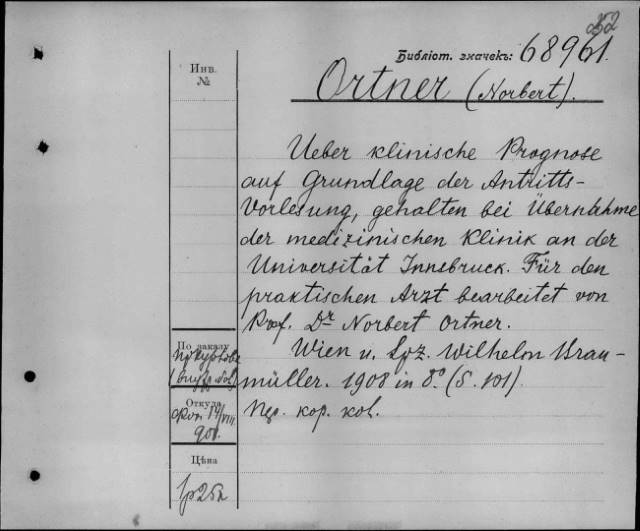 252
Библіот. значекъ: 68961.
Инв.
№
Ortner (Norbert).
Ueber klinische Prognose
auf Grundlage der Antritts-
Vorlesung, gehalten bei Übernahme
der medizinischen Klinik an der
Universität Innsbruck. Für den
praktischen Arzt bearbeitet von
Prof. Dr Norbert Ortner.
Wien u. Lpz. Wilhelm Brau-
müller. 1908 in 8° (S. 101).
кор.
По заказу
Откуда
17/VIII
908.
Цѣна